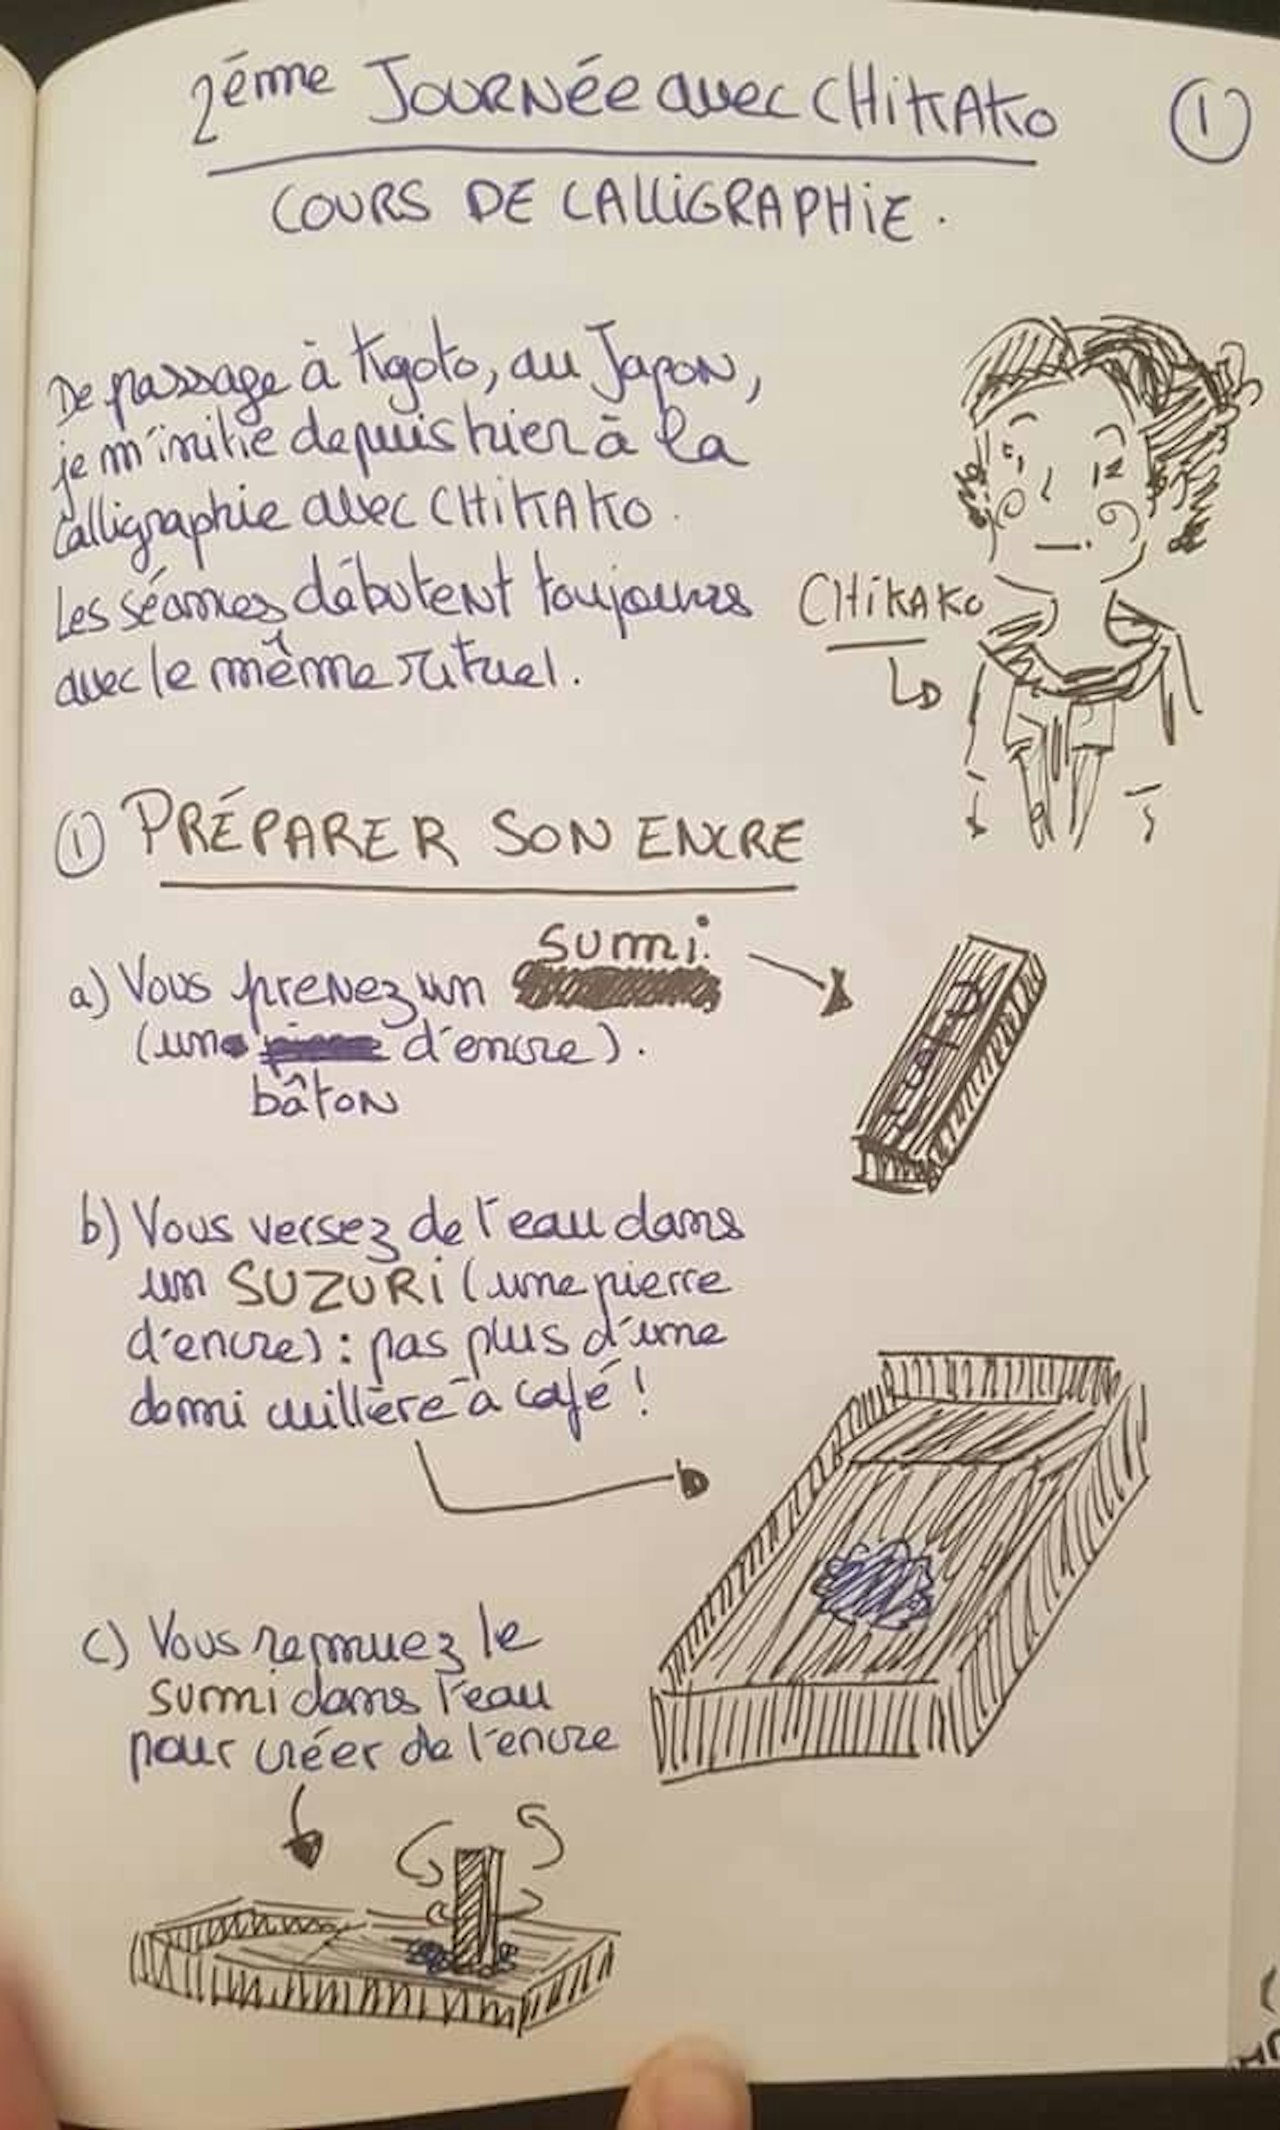 2éme JOURNÉE avec CHIKAKO
①
COURS DE CALLIGRAPHIE.
De passage à Kyoto, au JAPON,
je m'initie depuis hier à la
calligraphie avec CHIKAKO.
Les séances débutent toujours
avec le même rituel.
CHIKAKO
① PRÉPARER SON ENCRE
sumi.
a) Vous prenez un
(un d'encre).
bâton
b) Vous versez de l'eau dans
un SUZURI (une pierre
d'encre) : pas plus d'une
demi cuillère à café !
c) Vous remuez le
sumi dans l'eau
pour créer de l'encre